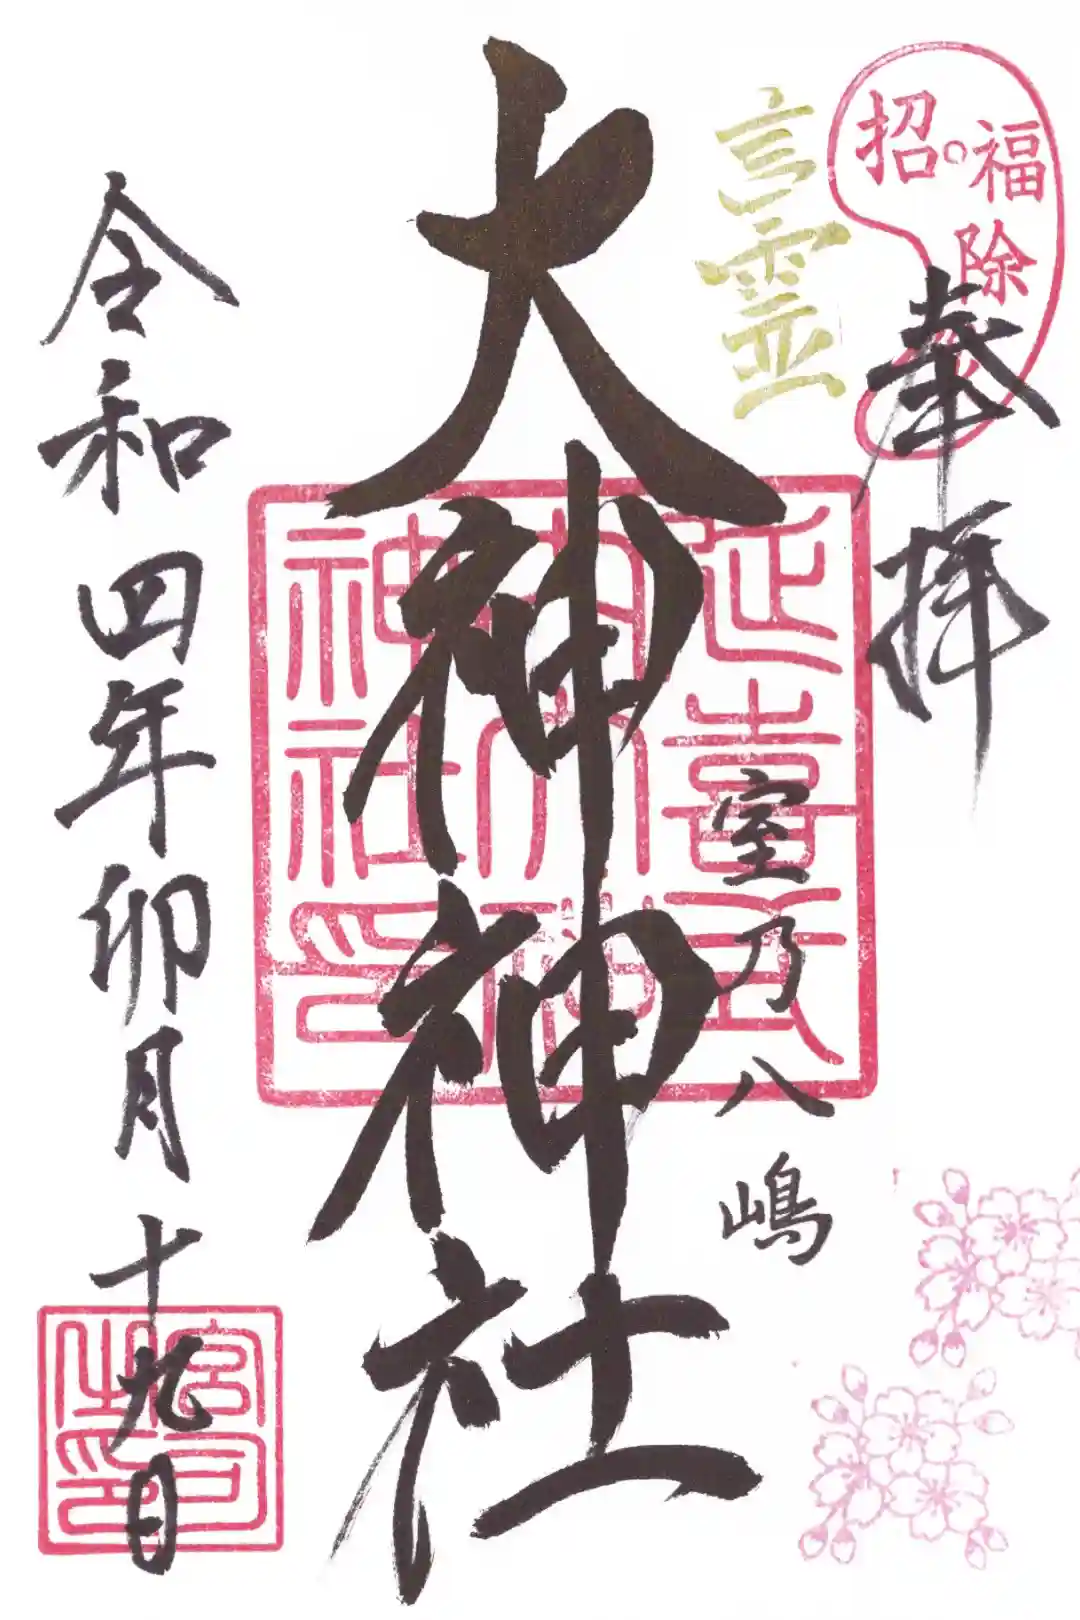 招福
除
奉拝
言霊
室乃八嶋
大神神社
延喜式
内大神
神社印
令和四年卯月十九日
宮司
之印